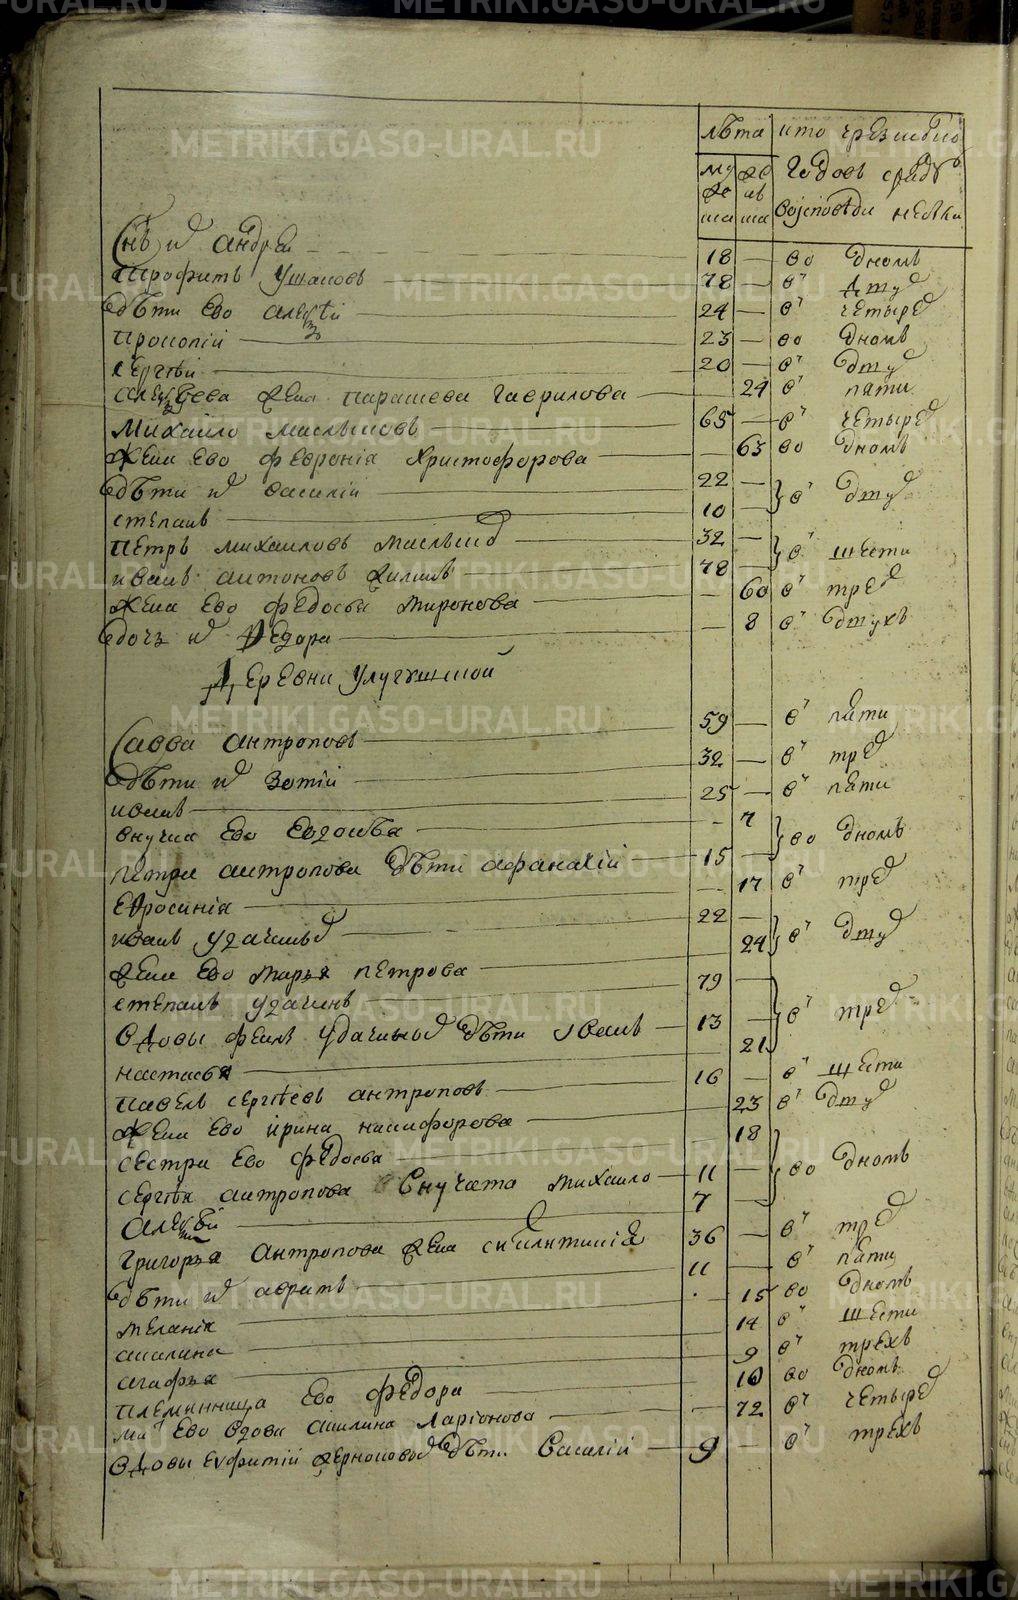 METRIKI.GASO-URAL.RU
лѣта кто чрез сколко
муже ска женска годовъ сряду
во исповѣди не были
Снъ их андреи 18 во дномъ
трофимъ Ушаковъ 78 в двух
дѣти ево алеѯѣи 24 в четырех
прокопїи 23 во дномъ
сергѣи 20 в двух
алеѯѣева жена парасцева гаврилова 24 в пяти
михаило масльковъ 65 в четырех
жена ево феѵронїя христофорова 63 во дномъ
дѣти их василїи 22 в двух
степанъ 10
петръ михаиловъ 32 в шести
иванъ антоновъ 78
жена ево федосья миронова 60 в трех
дочь их федора 8 в двухъ
деревни улугушской
Савва антроповъ 59 в пяти
дѣти их зотїи 32 в трех
иванъ 25 в пяти
внучка ево евдокѣя 7 во дномъ
петра антропова дѣти афанасїи 15
ефросинїя 17 в трех
иванъ удачиных 22 в двух
жена ево марья петрова 24
степанъ удачинъ 79 в трех
вдовы удачиных дѣти иванъ 13
настасья 21
павелъ сергѣевъ антроповъ 16 в шести
жена ево ирина никифорова 23 в двух
сестра ево федосья 18 во дномъ
сергѣя антропова внучата михаило 11
алеѯѣи 7
григорья антропова жена 36 в трех
дѣти их 11 в пяти
меланїя 15 во дномъ
акилина 14 в шести
агафья 9 в трехъ
племянница ево федора 10 во дномъ
мать ево вдова акилина ларїонова 72 в четырех
вдовы дѣти василїи 9 в трехъ